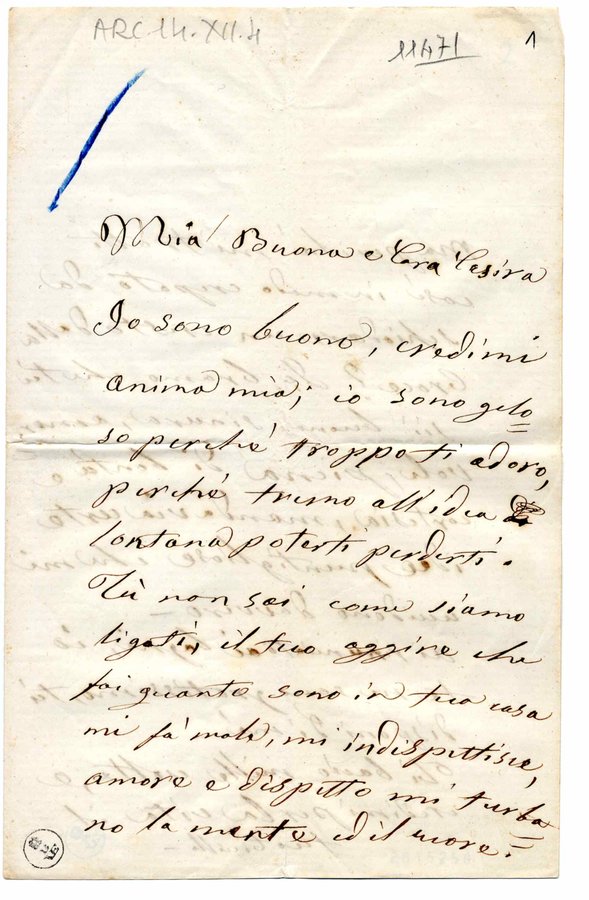 ARC 14. XII. 4
11471
1
Mia Buona e Cara Cesira
Io sono buono, credimi
anima mia; io sono gelo=
so perché troppo ti adoro,
perché tremo all'idea di
lontana poterti perderti.
Tù non sai come siamo
ligati, il tuo aggire che
fai quanto sono in tua casa
mi fà male, mi indispettisce,
amore e dispetto mi turba=
no la mente ed il cuore.